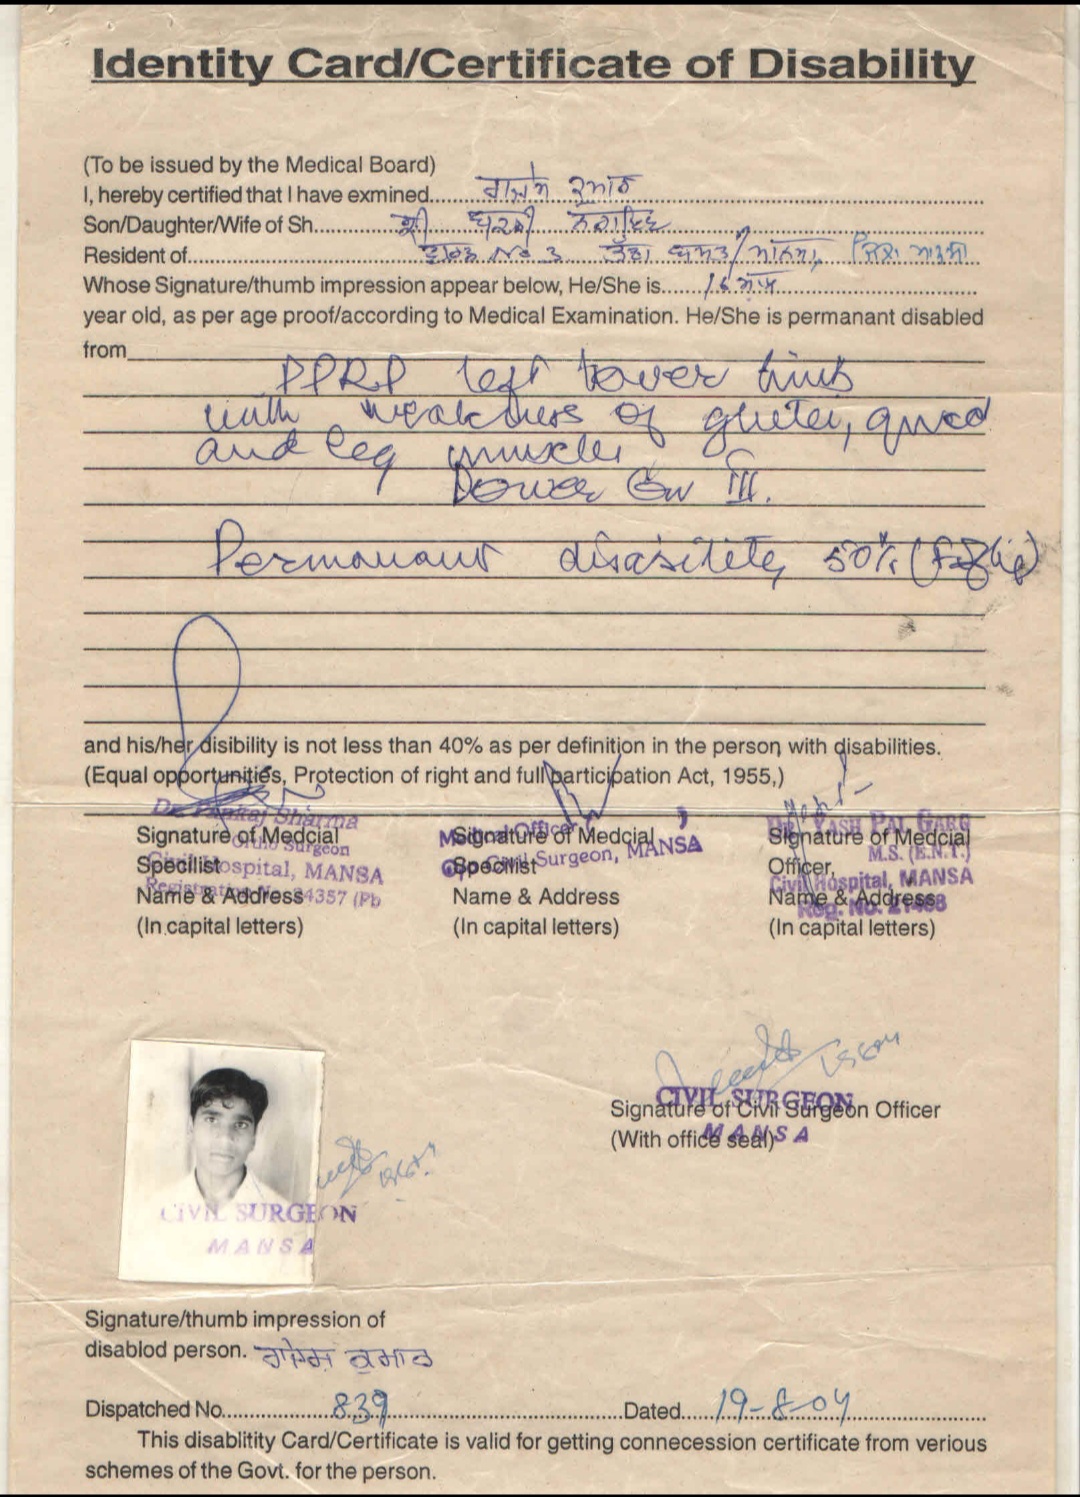 Identity Card/Certificate of Disability
(To be issued by the Medical Board)
I, hereby certified that I have exmined.....ਰਾਜੇਸ਼ ਕੁਮਾਰ
Son/Daughter/Wife of Sh.....ਸ਼੍ਰੀ
Resident of.....No 3 ਮਾਨਸਾ,
Whose Signature/thumb impression appear below, He/She is.....16 ਸਾਲ.....
year old, as per age proof/according to Medical Examination. He/She is permanant disabled
from
PPRP left lower limb
with weakness of glutei, quad
and leg muscles
Power Gr III.
Permanant disability 50% (Fifty)
and his/her disibility is not less than 40% as per definition in the person with disabilities.
(Equal opportunities, Protection of right and full participation Act, 1955,)
Dr. Pankaj Sharma
Ortho Surgeon
Civil Hospital, MANSA
Registration No. 34357 (Pb
Signature of Medcial
Specilist
Name & Address
(In capital letters)
Medical Officer
O/o Civil Surgeon, MANSA
Signature of Medcial
Specilist
Name & Address
(In capital letters)
DR. YASH PAL GARG
M.S. (E.N.T.)
Civil Hospital, MANSA
Reg. No.
Signature of Medcial
Officer,
Name & Address
(In capital letters)
CIVIL SURGEON
MANSA
Signature of Civil Surgeon Officer
(With office seal)
CIVIL SURGEON
MANSA
Signature/thumb impression of
disablod person. ਰਾਜੇਸ਼ ਕੁਮਾਰ
Dispatched No.....839.....Dated.....19-8-04
This disablitity Card/Certificate is valid for getting connecession certificate from verious
schemes of the Govt. for the person.